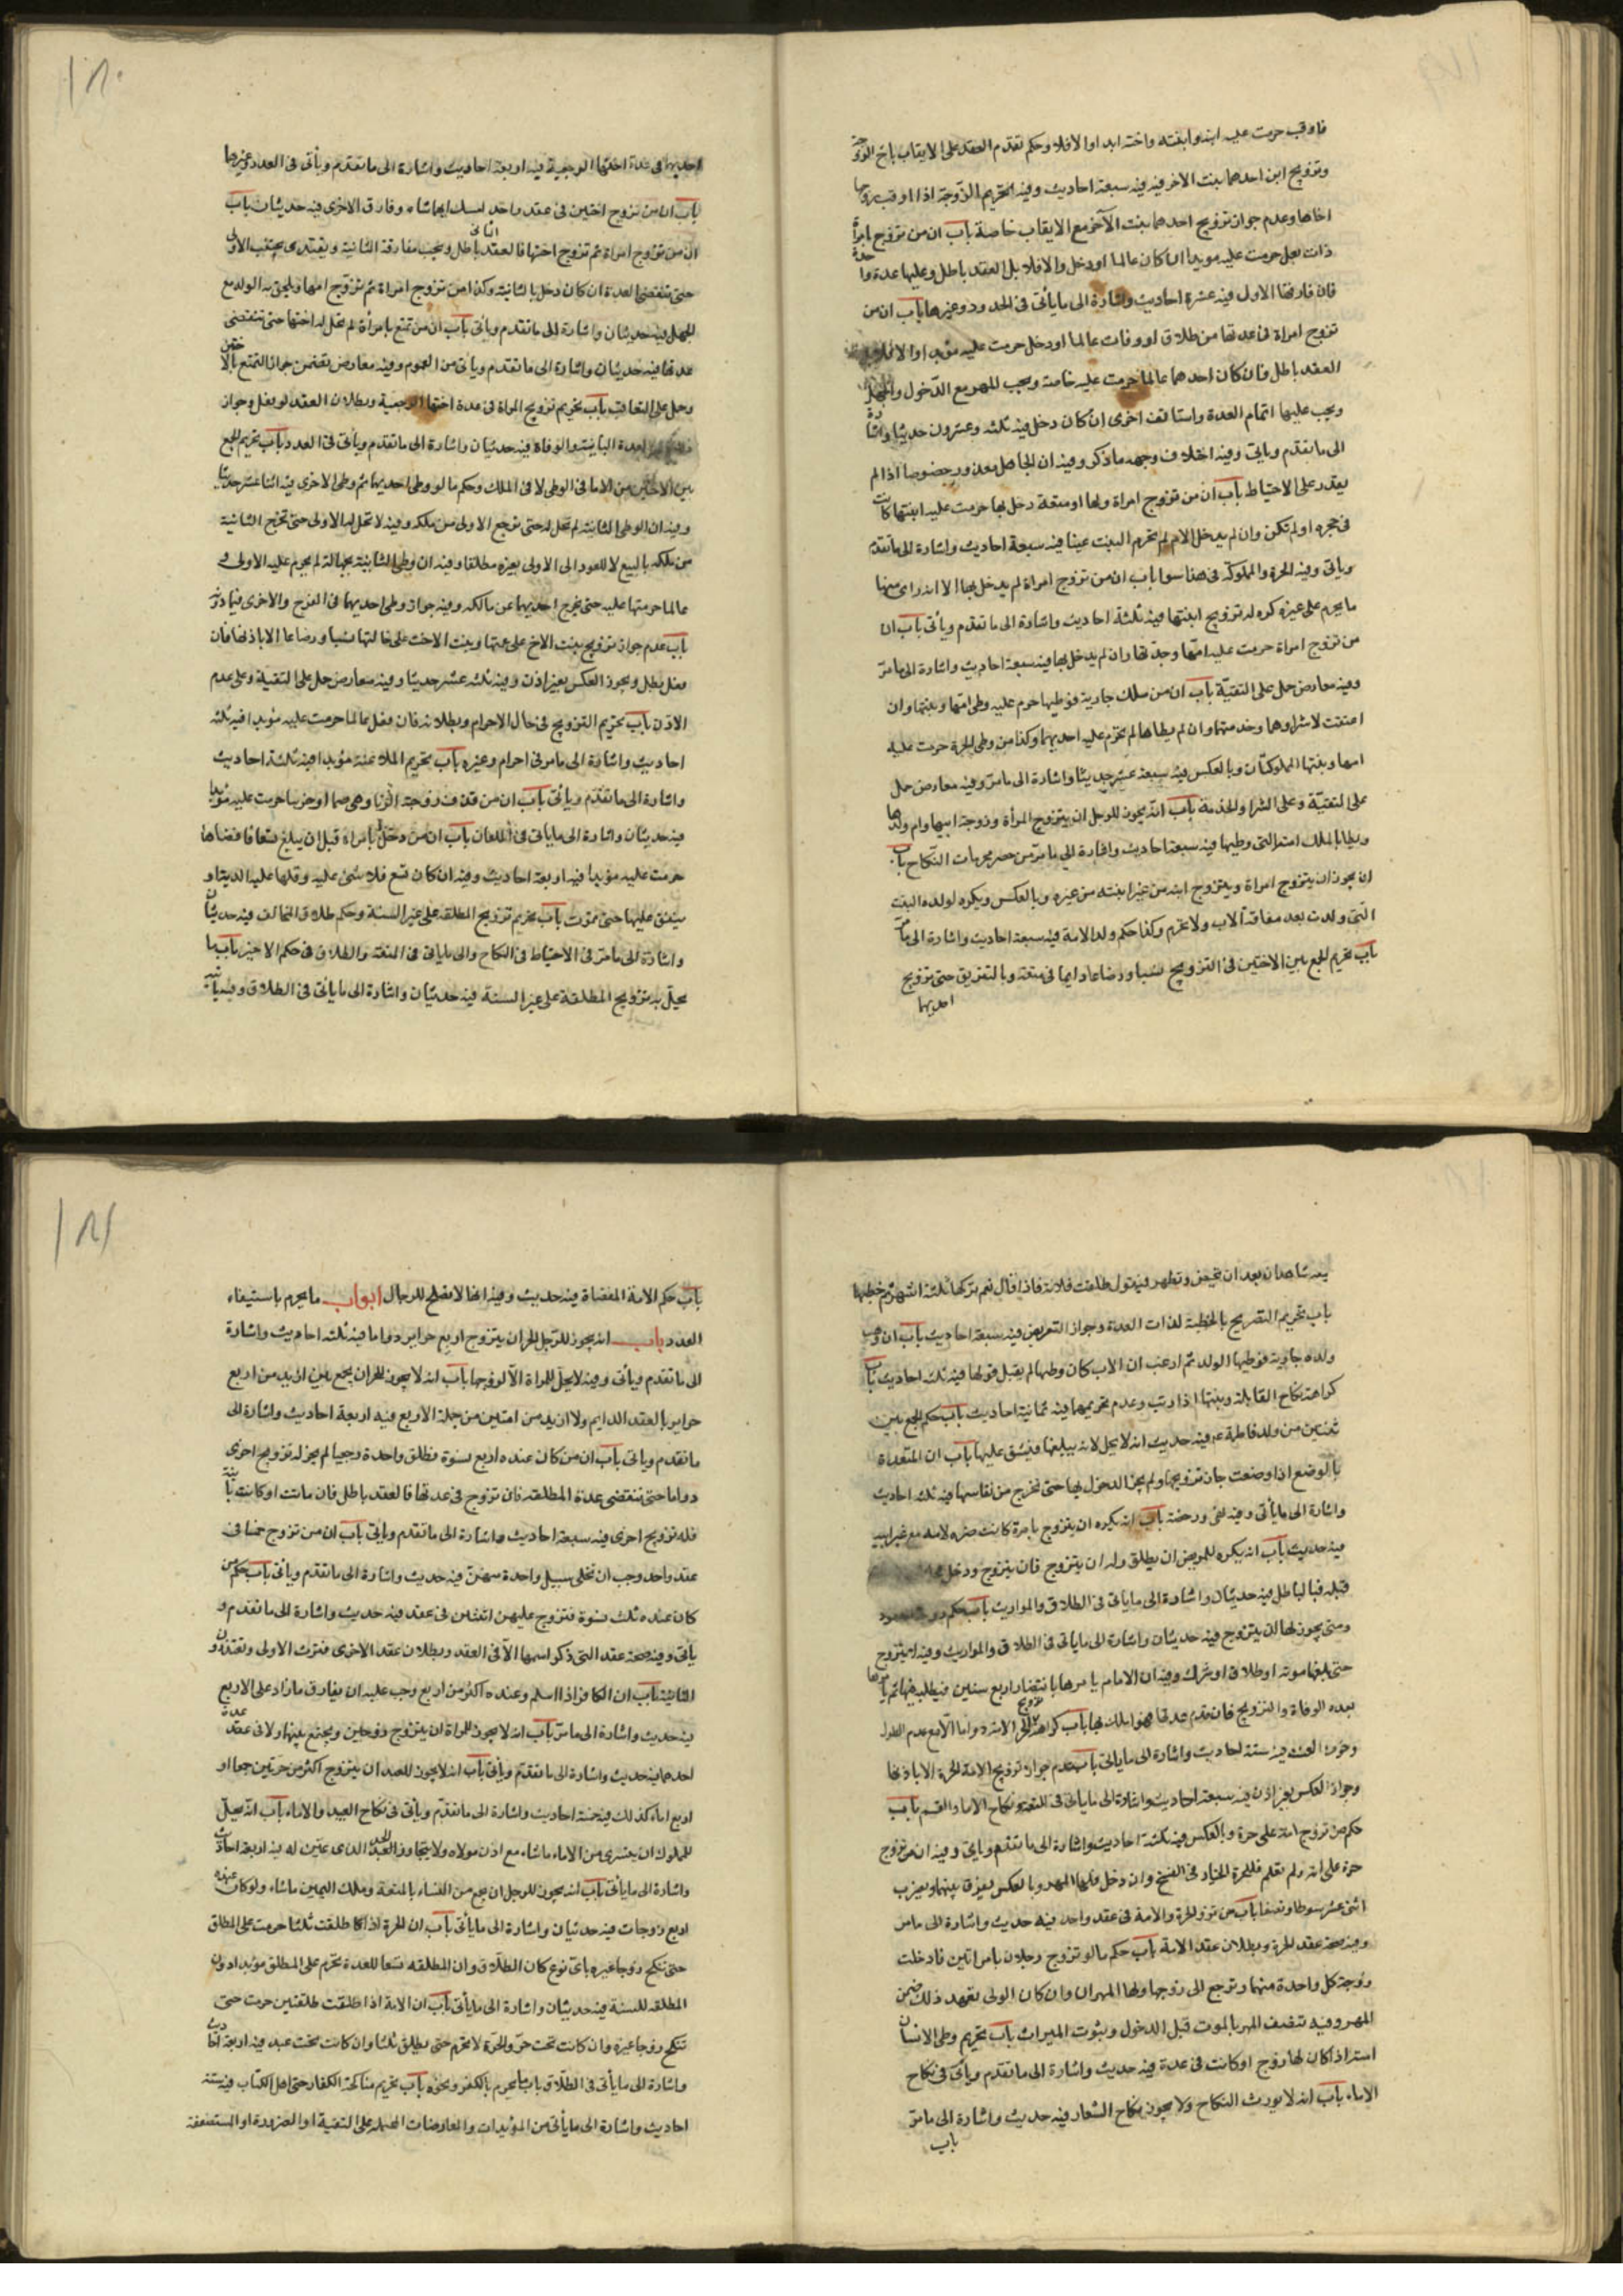 فاوقب حرمت عليه ابنه وابنته واخته ابدا والا فلا وحكم تقدم العقد على الايقاب باخ الزوجة
وتزويج ابن احدهما بنت الاخر فيه سبعة احاديث وفيه تحريم الزوجة اذا اوقب زوجها
اخاها وعدم جواز تزويج احدهما بنت الآخر مع الايقاب خاصة باب ان من تزوج امراة
ذات بعل حرمت عليه مؤبدا ان كان عالما او دخل والا فلا بل العقد باطل وعليها عدة واحدة
فان فارقها الاول فيه عشرة احاديث واشارة الى ما ياتى فى الحدود وغيرها باب ان من
تزوج امراة فى عدتها من طلاق او وفات عالما او دخل حرمت عليه مؤبدا والا فلا
العقد باطل فان كان احدهما عالما حرمت عليه خاصة ويجب المهر مع الدخول والجهل
ويجب عليها اتمام العدة واستانفت اخرى ان كان دخل فيه ثلثه وعشرون حديثا واشارة
الى ما تقدم وياتى وفيه اختلاف وجهه ما ذكر وفيه ان الجاهل معذور خصوصا اذا لم
يقدر على الاحتياط باب ان من تزوج امراة دائما او متعة دخل بها حرمت عليه ابنتها كانت
فى حجره او لم تكن وان لم يدخل بالام لم تحرم البنت عينا فيه سبعة احاديث واشارة الى ما تقدم
وياتى وفيه الحرة والمملوكة فى هذا سوا باب ان من تزوج امراة لم يدخل بها الا انه راى منها
ما يحرم على غيره كره له تزويج ابنتها فيه ثلثة احاديث واشارة الى ما تقدم ويأتى باب ان
من تزوج امراة حرمت عليه امها وجدتها وان لم يدخل بها فيه سبعة احاديث واشارة الى ما مر
وفيه معارض حمل على التقية باب ان من ملك جارية فوطيها حرم عليه وطى امها وبنتها وان
اعتقت لا شراوها وخدمتها وان لم يطاها لم تحرم عليه احديهما وكذا من وطى الحرة حرمت عليه
امها وبنتها المملوكتان وبالعكس فيه سبعة عشر حديثا واشارة الى ما مر وفيه معارض حمل
على التقية وعلى الشرا والخدمة باب انه يجوز للرجل ان يتزوج المرأة وزوجة ابيها وام ولدها
ويطا بالملك امته التى وطيها فيه سبعة احاديث واشارة الى ما مر من حصر محرمات النكاح باب
ان يجوز ان يتزوج امراة ويتزوج ابنه من غيرها ابنته من غيره وبالعكس ويكره لولده البنت
التى ولدت بعد مفارقة الاب ولا تحرم وكذا حكم ولد الامة فيه سبعة احاديث واشارة الى ما مر
باب تحريم الجمع بين الاختين فى التزويج نسبا ورضاعا دايما فى متعة وبالتفريق حتى تزويج
احديهما
احديهما فى عدة اختها الرجعية فيه اربعة احاديث واشارة الى ما تقدم ويأتى فى العدد وغيرها
باب ان من تزوج اختين فى عقد واحد امسك ايهما شاء وفارق الاخرى فيه حديثان باب
ان من تزوج امراة ثم تزوج اختها فالعقد الثانى باطل ويجب مفارقة الثانية ويجتنب الاولى
حتى تنقضى العدة ان كان دخل بالثانية وكذا من تزوج امراة ثم تزوج امها ويلحق به الولد مع
الجهل فيه حديثان واشارة الى ما تقدم وياتى باب ان من تمتع بامرأة لم تحل له اختها حتى تنقضى
عدتها فيه حديثان واشارة الى ما تقدم وياتى من العموم وفيه معارض تضمن جواز التمتع بالاختين
وحمل على التعاقب باب تحريم تزويج المراة فى عدة اختها الرجعية وبطلان العقد لو فعل وجواز
العدة البائنة والوفاة فيه حديثان واشارة الى ما تقدم ويأتى فى العدد باب تحريم الجمع
بين الاختين من الاما فى الوطى لا فى الملك وحكم ما لو وطى احديهما ثم وطى الاخرى فيه اثنا عشر حديثا
وفيه ان الوطى الثانية لم تحل له حتى تخرج الاولى من ملكه وفيه لا تحل له الاولى حتى تخرج الثانية
من ملكه بالبيع لا للعود الى الاولى بغيره مطلقا وفيه ان وطى الثانية بجهالة لم يحرم عليه الاولى و
عالما حرمتها عليه حتى يخرج احديهما عن مالكه وفيه جواز وطى احديهما فى الفرج والاخرى فيما دونه
باب عدم جواز تزويج بنت الاخ على عمتها وبنت الاخت على خالتها نسبا ورضاعا الا باذنها فان
فعل بطل ويجوز العكس بغير اذن وفيه ثلثه عشر حديثا وفيه معارض حمل على التقية وعلى عدم
الاذن باب تحريم التزويج فى حال الاحرام وبطلانه فان فعل عالما حرمت عليه مؤبدا فيه ثلثه
احاديث واشارة الى ما مر فى احرام وغيره باب تحريم الملاعنة مؤبدا فيه ثلثة احاديث
واشارة الى ما تقدم ويأتى باب ان من قذف زوجته الزنا وهى صما او خرسا حرمت عليه مؤبدا
فيه حديثان واشارة الى ما ياتى فى اللعان باب ان من دخل بامراة قبل ان يبلغ تسعا فافضاها
حرمت عليه مؤبدا فيه اربعة احاديث وفيه ان كان تسع فلا شئ عليه وقبلها عليه الدية و
ينفق عليها حتى تموت باب تحريم تزويج المطلقه على غير السنة وحكم طلاق المخالف فيه حديثان
واشارة الى ما مر فى الاحتياط فى النكاح والى ما ياتى فى المتعة والطلاق فى حكم الاخير باب ما
يحل به تزويج المطلقة على غير السنة فيه حديثان واشارة الى ما ياتى فى الطلاق وفيه
شاهدان بعد ان تحيض وتطهر فيقول طلقت فلانة فاذا قال نعم تركها ثلثة اشهر ثم خطبها
باب تحريم التصريح بالخطبة لذات العدة وجواز التعريض فيه سبعة احاديث باب ان وهب
ولده جارية فوطيها الولد ثم ادعت ان الاب كان وطيها لم يقبل قولها فيه ثلثه احاديث باب
كراهة نكاح القابلة وبنتها اذا ربت وعدم تحريمهما فيه ثمانية احاديث باب حكم الجمع بين
ثنتين من ولد فاطمة ع فيه حديث انه لا يحل لانه يبلغها فيشق عليها باب ان المعتدة
بالوضع اذا وضعت جاز تزويجها ولم يجز الدخول بها حتى تخرج من نفاسها فيه ثلثه احاديث
واشارة الى ما يأتى وفيه نفى ورخصة باب انه يكره ان يتزوج بامرة كانت ضره لامه مع غير ابيه
فيه حديث باب انه يكره للمريض ان يطلق وله ان يتزوج فان يتزوج ودخل
قبله فبالباطل فيه حديثان واشارة الى ما ياتى فى الطلاق والمواريث باب حكم
ومتى يجوز لها ان يتزوج فيه حديثان واشارة الى ما ياتى فى الطلاق والمواريث وفيه لا يتزوج
حتى بلغها موته او طلاق او شرك وفيه ان الامام يامرها بانتظار اربع سنين فيطلبه فيها ثم يامرها
بعده الوفاة والتزويج فان قدم عدتها فهو املك بها باب كراهة تزويج الحر الامة دواما الا مع عدم الطول
وخوف العنت فيه ستة احاديث واشارة الى ما ياتى باب عدم جواز تزويج الامة الحرة الا باذنها
وجواز العكس بغير اذن فيه سبعة احاديث واشارة الى ما ياتى فى المتعة ونكاح الاما والقسم باب
حكم من تزوج امة على حرة وبالعكس فيه ثلثة احاديث واشارة الى ما تقدم وياتى وفيه ان من تزوج
حرة على امة ولم تعلم فللحرة الخيار فى الفسخ وان دخل فلها المهر وبالعكس يفرق بينهما ويضرب
اثنى عشر سوطا ونصفا باب من تزوج الحرة والامة فى عقد واحد فيه حديث واشارة الى ما مر
وفيه صحة عقد الحرة وبطلان عقد الامة باب حكم ما لو تزوج رجلان بامراتين فادخلت
زوجة كل واحدة منهما وترجع الى زوجها ولها المهر ان وان كان الولى تعمد ذلك ضمن
المهر وفيه تنصف المهر بالموت قبل الدخول وبثبوت الميراث باب تحريم وطى الانسان
امته اذا كان لها زوج او كانت فى عدة فيه حديث واشارة الى ما تقدم ويأتى فى نكاح
الاماء باب انه لا يورث النكاح ولا يجوز نكاح الشغار فيه حديث واشارة الى ما مر
باب
باب حكم الامة المفضاة فيه حديث وفيه انها لا تصلح للرجال ابواب ما يحرم باستيفاء
العدد باب انه يجوز للرجل الحر ان يتزوج اربع حراير دواما فيه ثلثه احاديث واشارة
الى ما تقدم ويأتى وفيه لا يحل للمراة الا لزوجها باب انه لا يجوز للحر ان يجمع بين ازيد من اربع
حراير بالعقد الدايم ولا ازيد من امتين من جملة الاربع فيه اربعة احاديث واشارة الى
ما تقدم وياتى باب ان من كان عنده اربع نسوة فطلق واحدة رجعيا لم يجز له تزويج اخرى
دواما حتى تنقضى عدة المطلقه فان تزوج فى عدتها فالعقد باطل فان ماتت او كانت باينة
فله تزويج اخرى فيه سبعة احاديث واشارة الى ما تقدم وياتى باب ان من تزوج خمسا فى
عقد واحد وجب ان تخلى سبيل واحدة منهن فيه حديث واشارة الى ما تقدم وياتى باب حكم من
كان عنده ثلث نسوة فتزوج عليهن اثنتين فى عقد فيه حديث واشارة الى ما تقدم و
يأتى وفيه صحة عقد التى ذكر اسمها الآ فى العقد وبطلان عقد الاخرى فترث الاولى وتعتد دون
الثانية باب ان الكافر اذا اسلم وعنده اكثر من اربع وجب عليه ان يفارق ما زاد على الاربع
فيه حديث واشارة الى ما مر باب انه لا يجوز للمراة ان يتزوج زوجين ويجتمع بينهما ولا فى عدة
احدهما فيه حديث واشارة الى ما تقدم ويأتى باب انه لا يجوز للعبد ان يتزوج اكثر من حرتين جمعا او
اربع اماء كذلك فيه خمسة احاديث واشارة الى ما تقدم ويأتى فى نكاح العبيد والاماء باب انه يحل
للمملوك ان يشترى من الاماء ماشاء مع اذن مولاه ولا يتجاوز الحد الذى عين له فيه اربعة احاديث
واشارة الى ما يأتى باب انه يجوز للرجل ان يجمع من النساء بالمتعة وملك اليمين ماشاء ولو كان عنده
اربع زوجات فيه حديثان واشارة الى ما يأتى باب ان الحرة اذا طلقت ثلثا حرمت على المطلق
حتى تنكح زوجا غيره باى نوع كان الطلاق وان المطلقه تسعا للعدة تحرم على المطلق مؤبدا دون
المطلقه للسنة فيه حديثان واشارة الى ما يأتى باب ان الامة اذا طلقت طلقتين حرمت حتى
تنكح زوجا غيره وان كانت تحت حر والحرة لا تحرم حتى يطلق ثلثا وان كانت تحت عبد فيه اربعة احاديث
واشارة الى ما يأتى فى الطلاق باب ما يحرم بالكفر ونحوه باب تحريم مناكحة الكفار حتى اهل الكتاب فيه ستة
احاديث واشارة الى ما يأتى من المؤيدات والمعارضات المحموله على التقية او الضرورة او المستضعفة